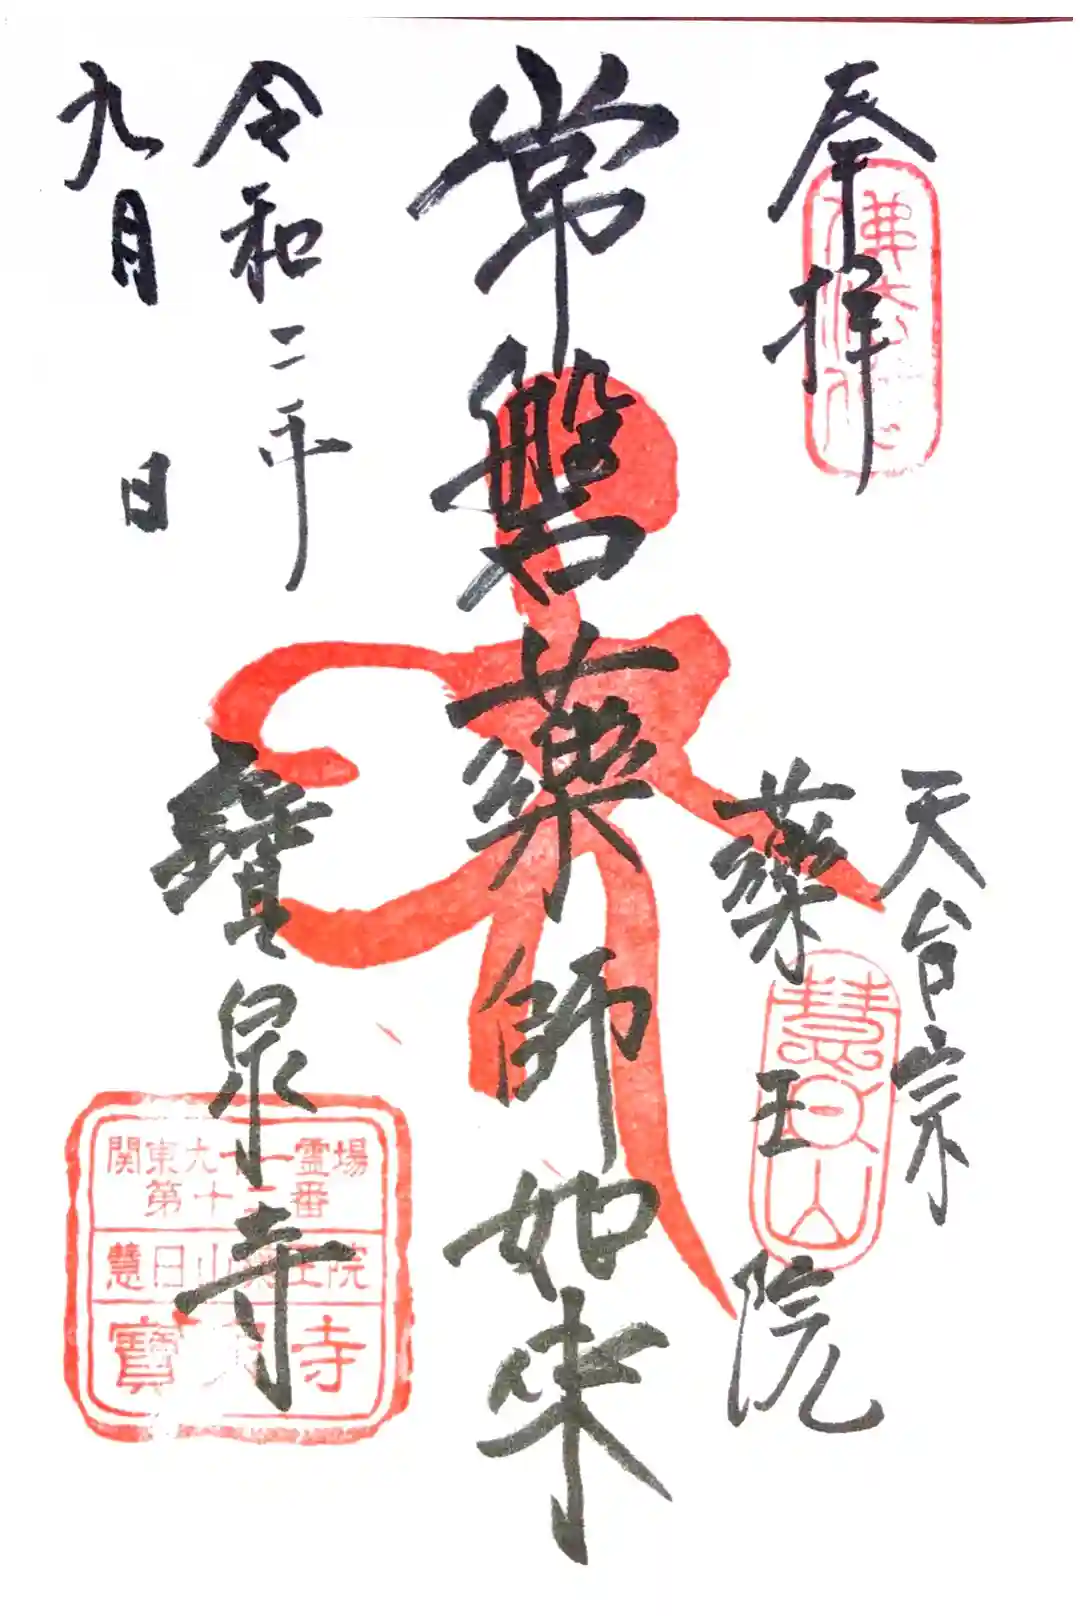 奉拝
天台宗
藥王院
慧日山
常磐藥師如来
令和二年
九月 日
寶泉寺
関東九十一霊場
第十二番
慧日山藥王院
寶泉寺